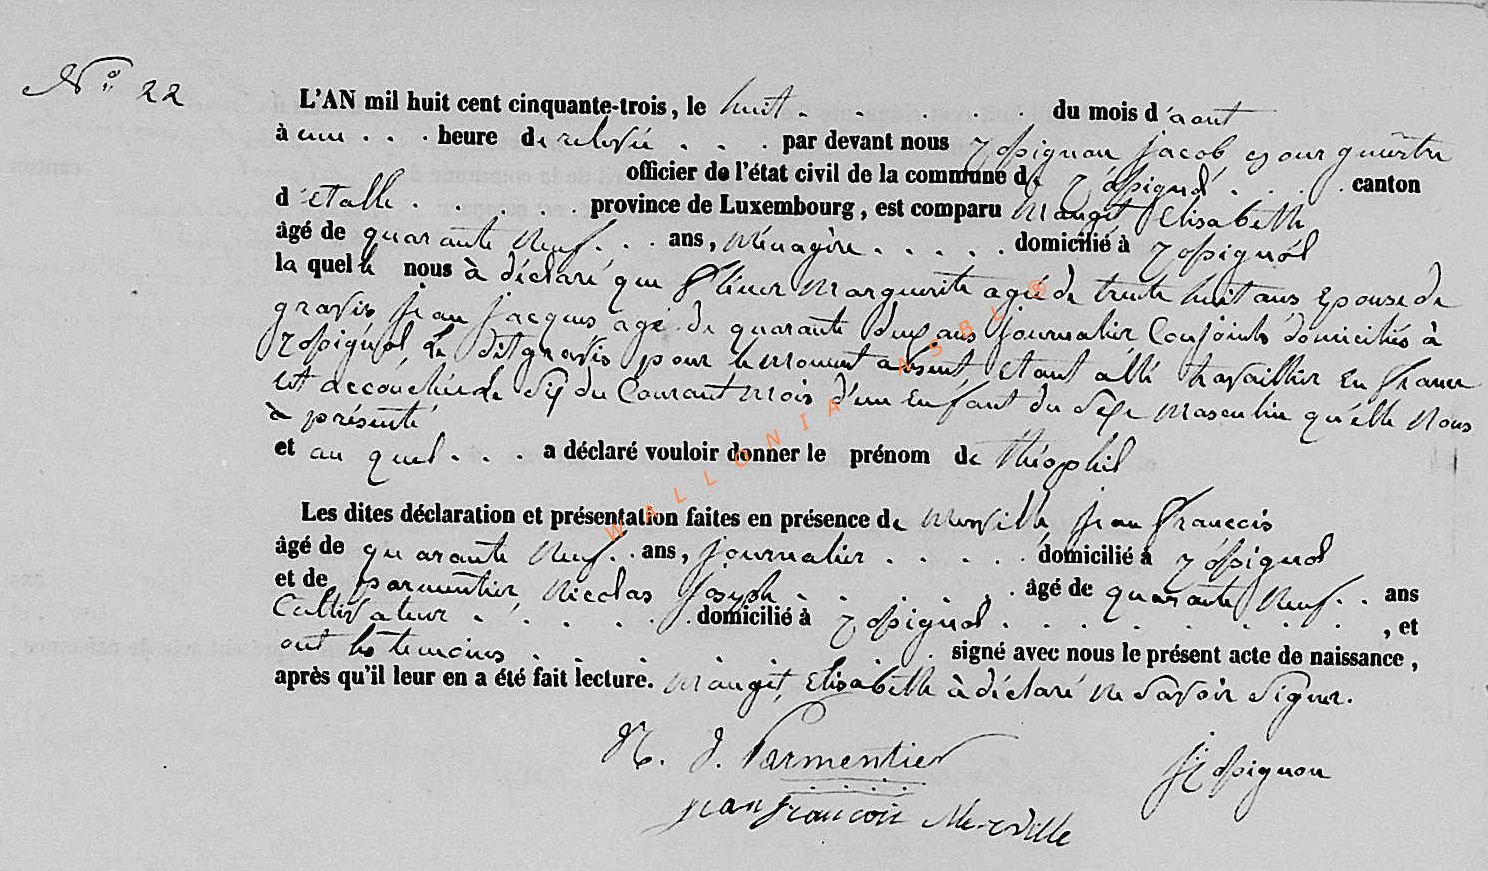 N° 22
L'AN mil huit cent cinquante-trois, le huit . . . . . du mois d'aout
à une . . . heure de relevée . . . par devant nous Rossignon jacob Bourguemetre
officier de l'état civil de la commune de Rossignol . . . . canton
d'etalle . . . . . province de Luxembourg, est comparu Mangit Elisabeth
âgé de quarante neuf . . . ans, ménagère . . . . . domicilié à Rossignol
la quelle nous à déclaré que Marguerite agé de trente huit ans Epouse de
gravis jean jacques agé de quarante deux ans journalier Conjoints domiciliés à
Rossignol, Le dit gravis pour le moment absent étant allé travaillier En france
Est accouchée le Six du Courant Mois d'un Enfant du Sexe Masculin qu'elle Nous
à présenté
et au quel . . . a déclaré vouloir donner le prénom de théophil
Les dites déclaration et présentation faites en présence de Merville jean francois
âgé de quarante Neuf . . ans, journalier . . . . . domicilié à Rossignol
et de parmentier Nicolas joseph . . . . . . âgé de quarante Neuf . . ans
Cultivateur . . . . . domicilié à Rossignol . . . . . . . . , et
ont les temoins . . . . . . . signé avec nous le présent acte de naissance,
après qu'il leur en a été fait lecture. Mangit Elisabeth à déclaré ne Savoir Signer.
N. J. Parmentier
J Rossignon
jean francois Merville
WALLONIA ASBL ©